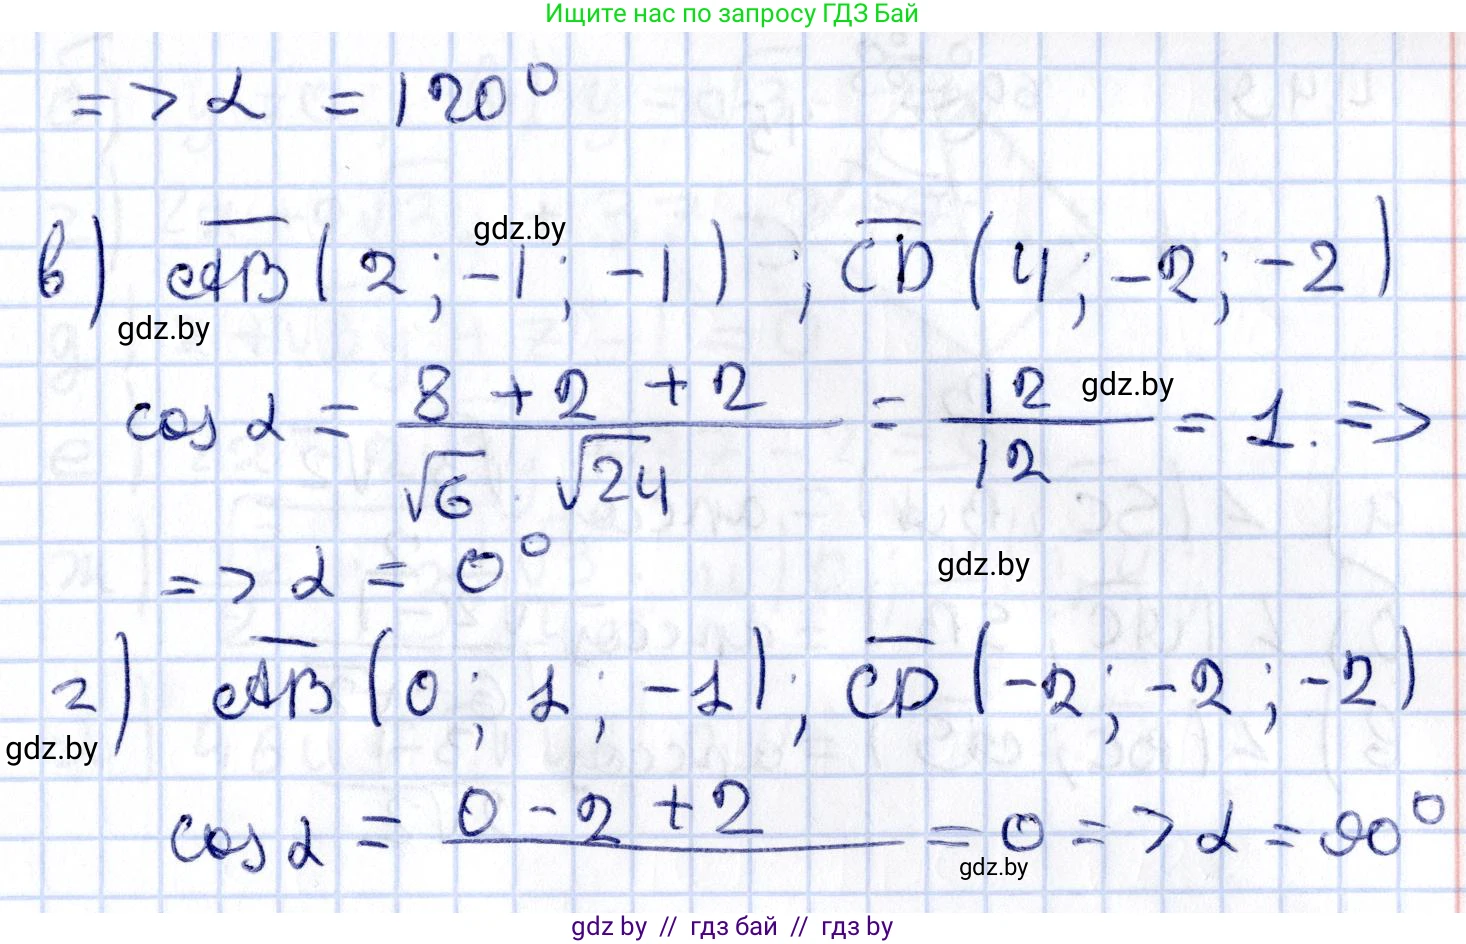 Ищите нас по запросу ГДЗ Бай
=> α = 120°
в) AB (2; -1; -1); CD (4; -2; -2)
gdz.by
gdz.by
cos α = (8 + 2 + 2) / (√6 · √24) = 12 / 12 = 1. =>
gdz.by
=> α = 0°
gdz.by
г) AB (0; 1; -1); CD (-2; -2; -2)
gdz.by
cos α = (0 - 2 + 2) / = 0 => α = 90°
gdz.by
gdz by // гдз бай // гдз by